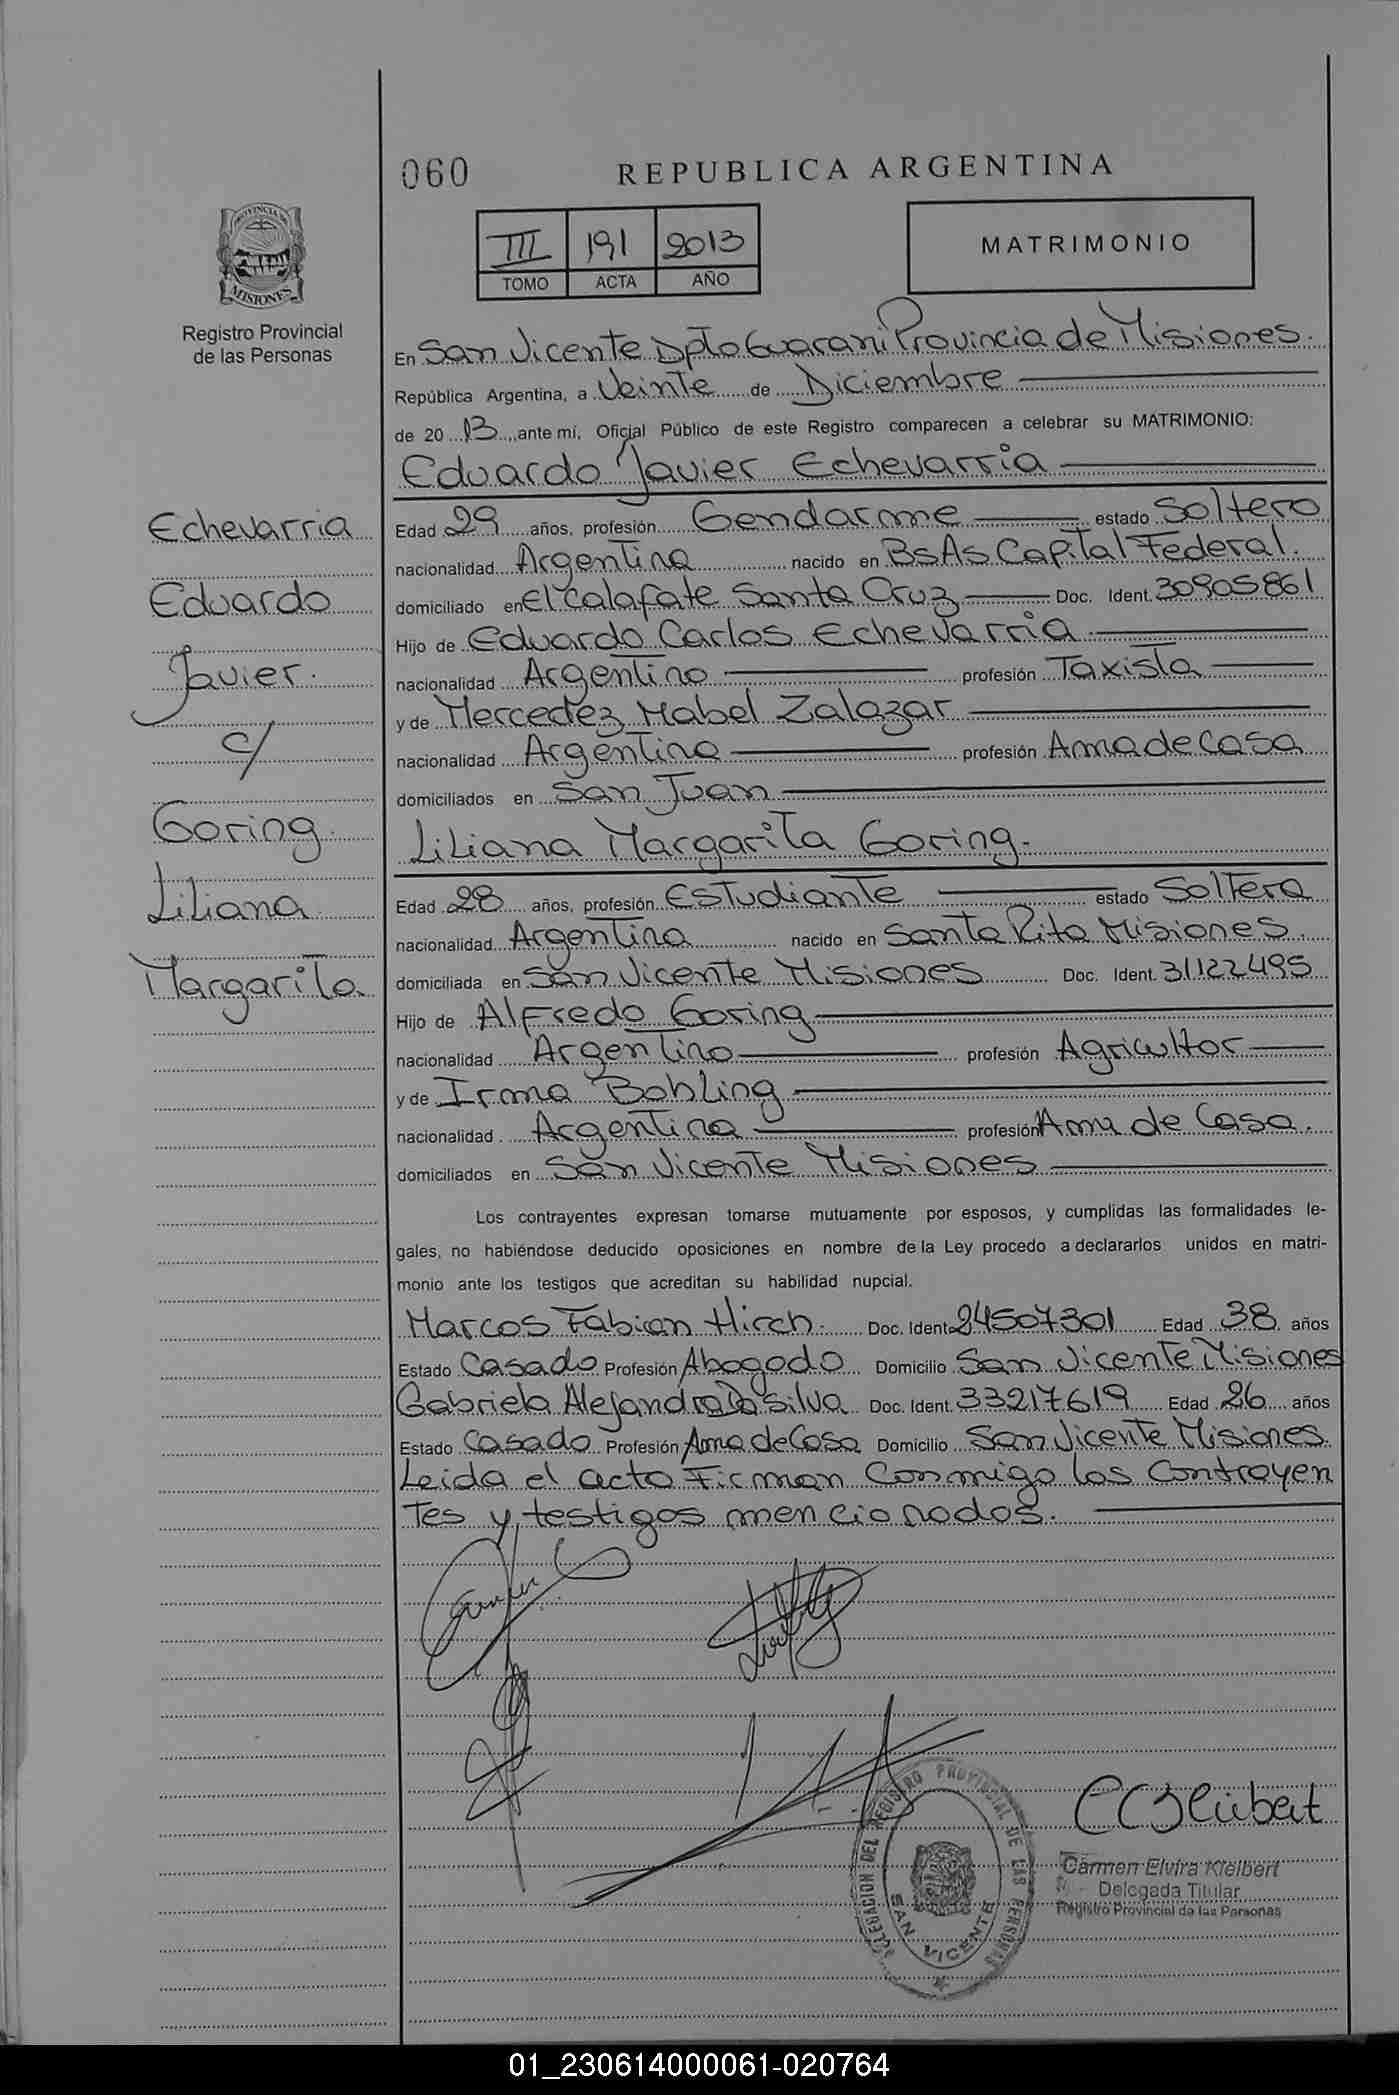 060
REPUBLICA ARGENTINA
III 191 2013
TOMO ACTA AÑO
MATRIMONIO
PROVINCIA DE
MISIONES
Registro Provincial
de las Personas
En San Vicente Dpto Guarani Provincia de Misiones.
República Argentina, a Veinte de Diciembre
de 20 13 ante mí, Oficial Público de este Registro comparecen a celebrar su MATRIMONIO:
Eduardo Javier Echevarria
Echevarria
Eduardo
Javier.
c/
Goring
Liliana
Margarita
Edad 29 años, profesión Gendarme estado Soltero
nacionalidad Argentina nacido en BsAs Capital Federal.
domiciliado en El Calafate Santa Cruz Doc. Ident. 30905861
Hijo de Eduardo Carlos Echevarria
nacionalidad Argentino profesión Taxista
y de Mercedez Mabel Zalazar
nacionalidad Argentina profesión Ama de casa
domiciliados en San Juan
Liliana Margarita Goring.
Edad 28 años, profesión Estudiante estado Soltera
nacionalidad Argentina nacido en Santa Rita Misiones.
domiciliada en San Vicente Misiones Doc. Ident. 31122495
Hijo de Alfredo Goring
nacionalidad Argentino profesión Agricultor
y de Irma Bohling
nacionalidad Argentina profesión Ama de Casa.
domiciliados en San Vicente Misiones
Los contrayentes expresan tomarse mutuamente por esposos, y cumplidas las formalidades le-
gales, no habiéndose deducido oposiciones en nombre de la Ley procedo a declararlos unidos en matri-
monio ante los testigos que acreditan su habilidad nupcial.
Marcos Fabian Hirch. Doc. Ident. 24507301 Edad 38 años
Estado Casado Profesión Abogado Domicilio San Vicente Misiones
Gabriela Alejandra Da Silva Doc. Ident. 33217619 Edad 26 años
Estado Casado Profesión Ama de Casa Domicilio San Vicente Misiones.
Leida el acta Firman Conmigo los Contrayen
tes y testigos mencionados.
DELEGACION DEL REGISTRO PROVINCIAL DE LAS PERSONAS
SAN VICENTE
Carmen Elvira Kleibert
Delegada Titular
Registro Provincial de las Personas
01_230614000061-020764